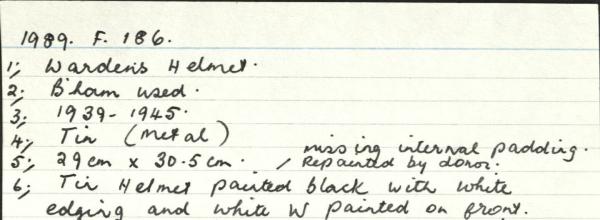 1989. F. 186.
1; Wardens Helmet.
2; B'ham used.
3; 1939-1945.
4; Tin (metal)
missing internal padding.
5; 29cm x 30.5cm. / Repainted by donor.
6; Tin Helmet painted black with white
edging and white W painted on front.